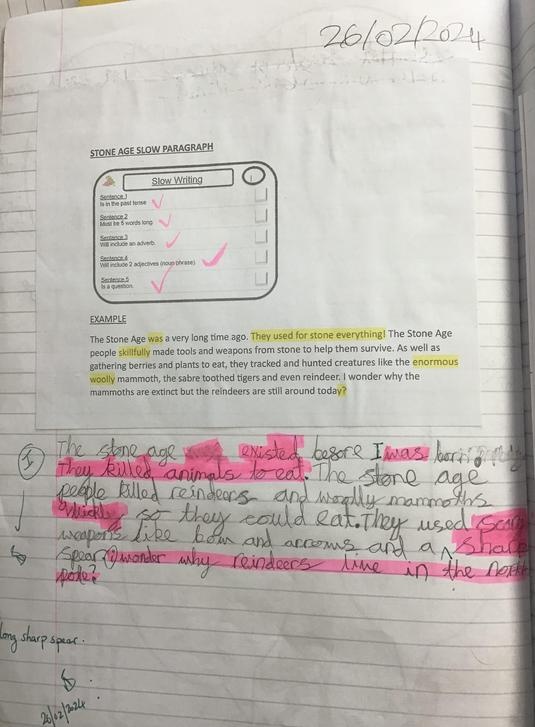 26/02/2024
STONE AGE SLOW PARAGRAPH
Slow Writing
Sentence 1
Is in the past tense
Sentence 2
Must be 5 words long
Sentence 3
Will include an adverb.
Sentence 4
Will include 2 adjectives (noun phrase)
Sentence 5
Is a question.
EXAMPLE
The Stone Age was a very long time ago. They used for stone everything! The Stone Age
people skillfully made tools and weapons from stone to help them survive. As well as
gathering berries and plants to eat, they tracked and hunted creatures like the enormous
woolly mammoth, the sabre toothed tigers and even reindeer. I wonder why the
mammoths are extinct but the reindeers are still around today?
I
The stone age existed before I was born.
They killed animals to eat. The stone age
people killed reindeers and woolly mammoths
so they could eat. They used scary
weapons like bow and arrows and a sharp
spear. I wonder why reindeers live in the north
pole?
long sharp spear.
26/02/2024